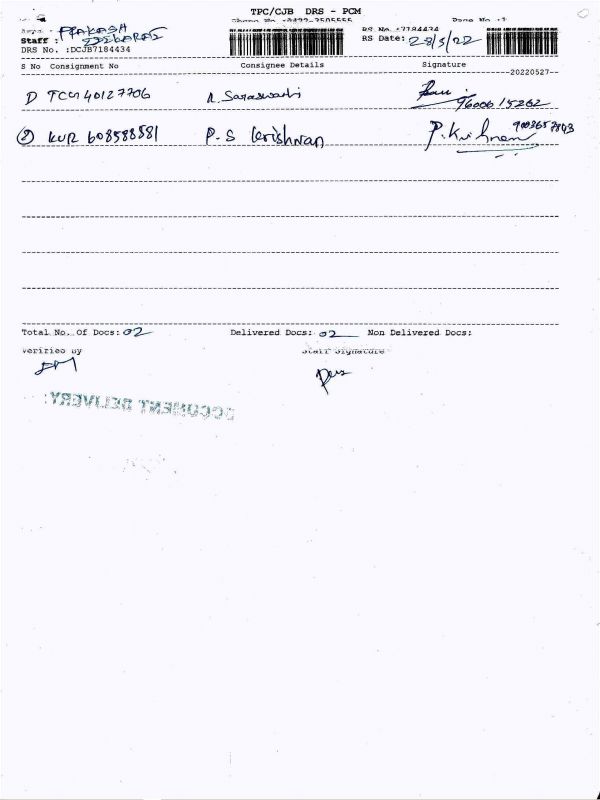 TPC/CJB DRS - PCM
Phone No :0422-2505555 Page No :1
PRAKASH
Staff :
DRS No. :DCJB7184434
RS No :7184434
RS Date: 28/5/22
S No Consignment No Consignee Details Signature
20220527
① TCM 40127706 R. Saraswathi 9600615262
② KUR 608588581 P.S Krishnan P. Krishnan
Total No. Of Docs: 02 Delivered Docs: 02 Non Delivered Docs:
Verified By Staff Signature
DOCUMENT DELIVERY